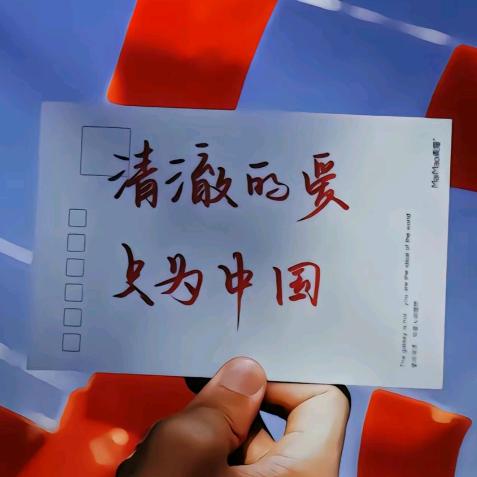 清澈的爱
只为中国
MaiMao
The galaxy is mild you are the ideal of the world